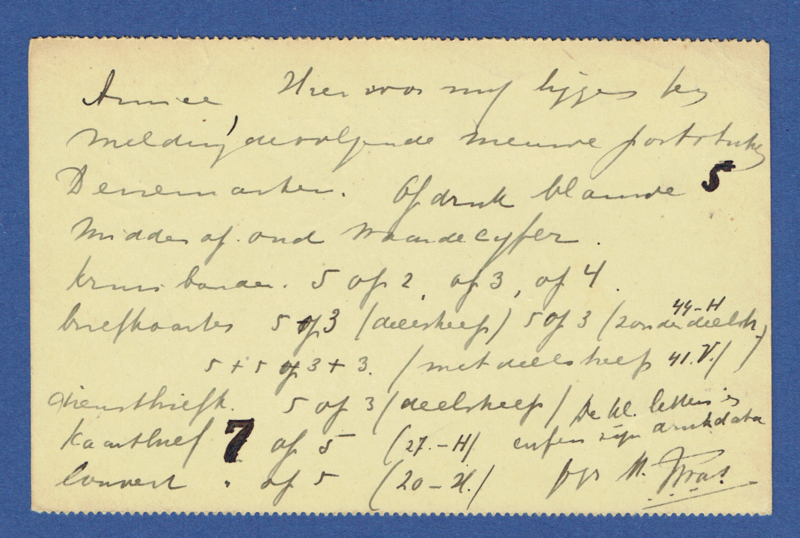 Amice Hier voor mij liggen ter
melding de volgende nieuwe poststukken
Denemarken. Opdruk blauwe 5
midden op oud waardecyfer.
kruisbanden. 5 op 2, op 3, op 4.
briefkaarten 5 op 3 (deelstreep) 5 op 3 (zonder deelstr. 44-H)
5 + 5 op 3 + 3. (met deelstreep 41.V.)
dienstbriefk. 5 op 3 (deelstreep) De kl. letters en
kaartbrief 7 op 5 (27.-H) cijfers zijn drukdata
Couvert " op 5 (20-H.)